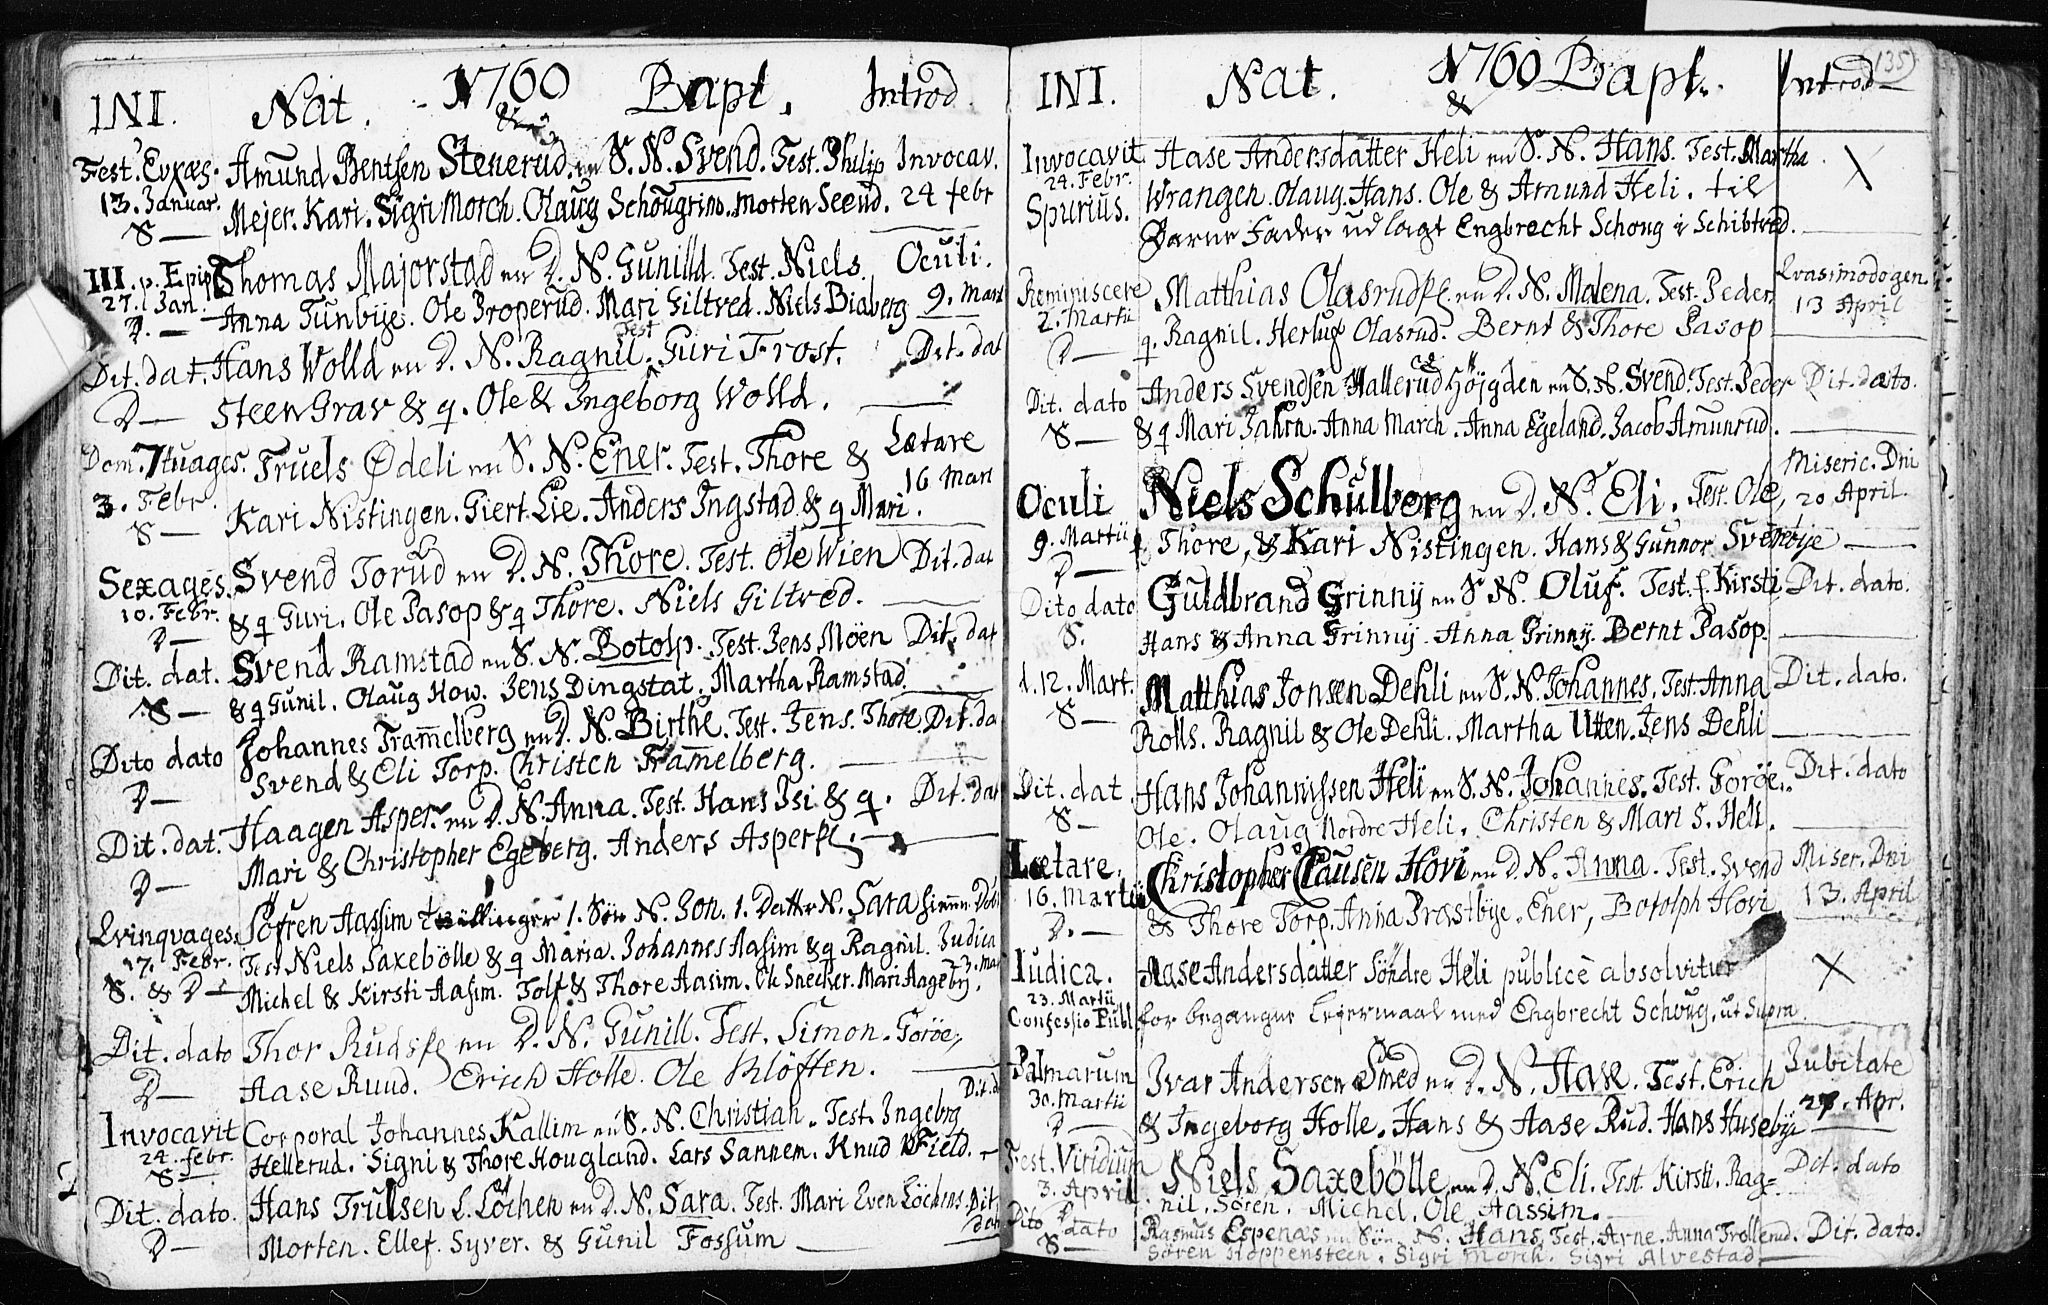 INI. Nat. 1760 Bapt. Introd.
&
Fest. Amund Bentsen Stenerud en S. N. Svend. Test. Philip Invocav.
13. Januar. Mejer. Kari. Sigri Morch. Olaug Schougrim. Morten Seeud. 24 febr
S —
III. p. Epip Thomas Majorstad en D. N. Gunilld. Test. Niels. Oculi.
27. Jan. Anna Tunbije. Ole Properud. Mari Giltved. Niels Biaberg 9. Mart
D. —
Dit. dat. Hans Wolld en D. N. Ragnil. Test Guri Frost. Dit. dat
D — Steen Grav & q. Ole & Ingeborg Wolld.
Dom. 7tuages. Truels Ødeli en S. N. Ener. Test. Thore & Lætare
3. Febr. Kari Nistingen. Giert Lie. Anders Ingstad & q Mari. 16 Mart
S —
Sexages. Svend Torud en D. N. Thore. Test. Ole Wien Dit. dat
10. Febr. & q Guri. Ole Pasop & q Thore. Niels Giltved.
D —
Dit. dat. Svend Ramstad en S. N. Botolp. Test. Jens Möen Dit. dat
S — & q Gunil. Olaug How. Jens Dingstat. Martha Ramstad.
Dito dato Johannes Tram̄elberg en D. N. Birthe. Test. Jens. Thore. Dit. da
D — Svend & Eli Torp. Christen Tram̄elberg.
Dit. dat. Haagen Asper. en D. N. Anna. Test. Hans Isi & q. Dit. dat
D — Mari & Christopher Egeberg. Anders Asperfl.
Qvinqvages. Søfren Aassim tvillinger 1. Sön N. Jon. 1. Datter N. Sara
17. Febr. Test Niels Saxebölle & q Maria. Johannes Aasim & q Ragnil. Judica
S. & D — Michel & Kirsti Aasim. Tolf & Thore Aasim. Ole Snecker. Mari Aageby. 23. Mar
Dit. dato Thor Rudsfl en D. N. Gunill. Test. Simon. Goröe,
D — Aase Ruud. Erich Holle. Ole Klöften. Dit. d
Invocavit Corporal Johannes Kallim en S. N. Christian. Test. Ingebrg
24. febr. Hellerud. Signi & Thore Hougland. Lars Sannem. Knud Field.
S —
Dit. dato. Hans Trulsen L. Löchen en D. N. Sara. Test. Mari Even Löchens. Dit.
D — Morten. Ellef. Syver. & Gunil Fossum dat
INI. Nat. 1760 Bapt. Introd 135
&
Invocavit Aase Andersdatter Heli en S. N. Hans. Test. Martha X
24. Febr. Wrangen. Olaug. Hans. Ole & Amund Heli. til
Spurius. Barne Fader udlagt Engbrecht Schoug i Schibtved.
Reminiscere Matthias Olasrudfl. en D. N. Malena. Test. Peder Qvasimodogen.
2. Martii q. Ragnil. Herluf Olasrud. Bernt & Thore Pasop 13 April
D —
Dit. dato Anders Svendsen Hallerud Höjgden en S. N. Svend. Test. Peder Dit. dato.
S — & q Mari Jahrn. Anna March. Anna Egeland. Jacob Amunrud.
Oculi Niels Schulberg en D. N. Eli. Test. Ole, Miseric. Dni
9. Martii Thore, & Kari Nistingen. Hans & Gunnor Svenöije 20 April.
D —
Dito dato Guldbrand Grinnij en S. N. Oluf. Test. Kirsti Dit. dato.
S. Hans & Anna Grinnij. Anna Grinnij. Bernt Pasop.
d. 12. Mart. Matthias Jonsen Dehli en S. N. Johannes. Test. Anna Dit. dato.
S — Rolls. Ragnil & Ole Dehli. Martha Utten. Jens Dehli
Dit. dat Hans Johannissen Heli en S. N. Johannes. Test. Goröe. Dit. dato
S — Ole. Olaug Nordre Heli. Christen & Mari S. Heli.
Lætare. Christopher Clausen Hovi en D. N. Anna. Test. Svend Miser. Dni
16. Martii & Thore Torp. Anna Præstbije. Ener, Botolph Hovi 13. April
D. —
Iudica. Aase Andersdatter Söndre Heli publicè absolvitur X
23. Martii
Confessio Publ for begangne Lejermaal med Engbrecht Schoug, ut Supra
Palmarum Ivar Andersen Smed en D. N. Aase. Test. Erich Jubilate
30. Martii & Ingeborg Holle. Hans & Aase Rud. Hans Husebije 27. Apr.
D —
Fest. Viridium Niels Saxebölle en D. N. Eli. Test. Kirsti. Rag= Dit. dato
3. April. nil. Sören. Michel. Ole Aassim.
D
Dito dato Rasmus Espenæs en Sön N. Hans. Test. Arne. Anna Trollerud. Dit. dato.
S — Sören Hoppensteen. Sigri Morch. Sigri Alvestad.